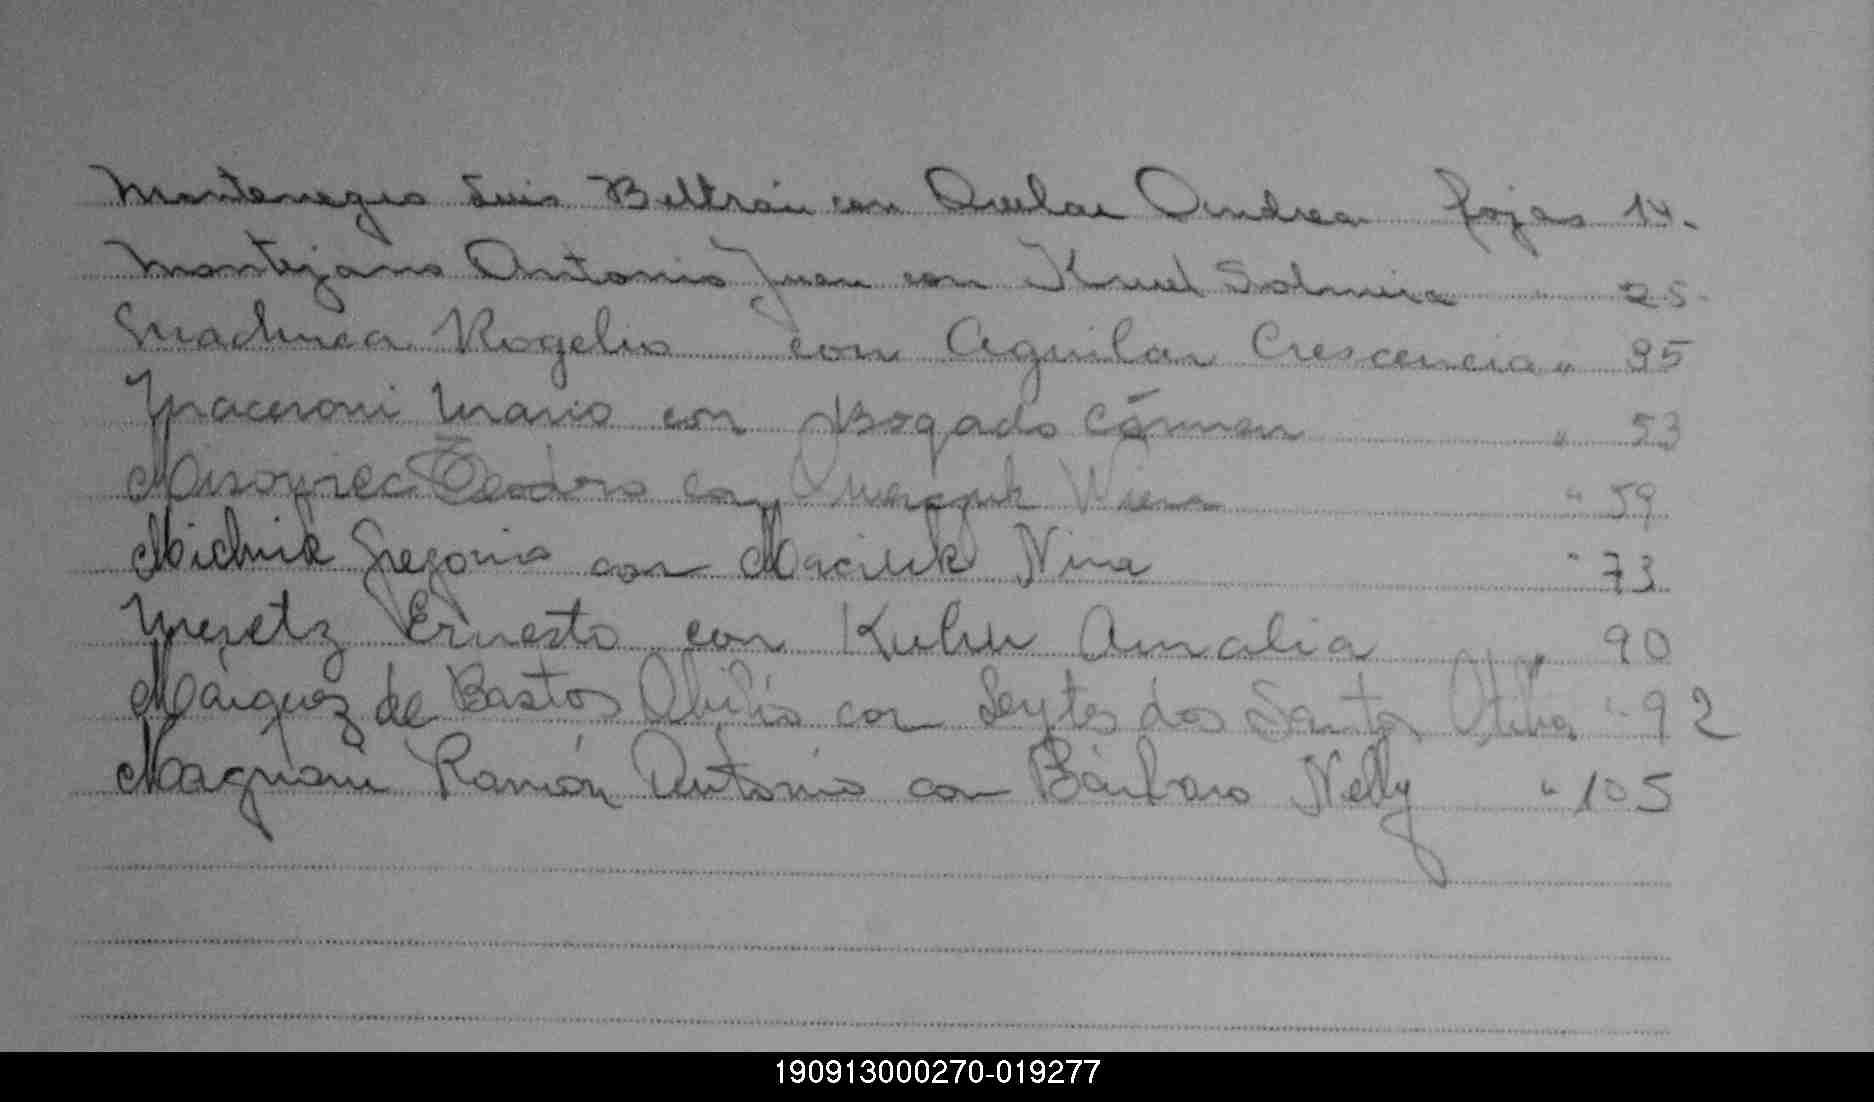 Montenegro Luis Beltrán con Andrea fojas 14.
Montejano Antonio Juan con 25
Rogelio con Aguilar Crescencia " 35
Macaroni Mario con Bogado Cármen " 53
Teodoro con " 59
Michnik Gregorio con Maciuk Nina " 73
Meretz Ernesto con Kuhn Amalia " 90
Márquez de Bastos Abilio con dos Santos " 92
Magnani Ramón Antonio con Bárbaro Nelly " 105
190913000270-019277